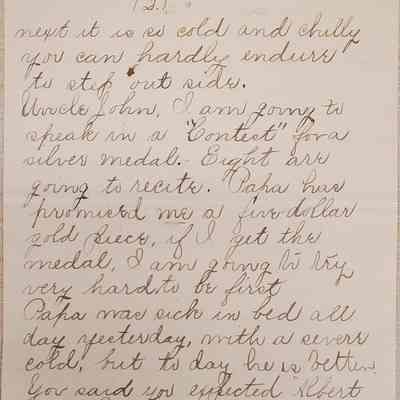 next it is so cold and chilly
you can hardly endure
to step out side.
Uncle John, I am going to
speak in a "Contest" for a
silver medal. Eight are
going to recite. Papa has
promised me a five dollar
gold piece, if I get the
medal, I am going to try
very hard to be first
Papa was sick in bed all
day yesterday, with a severe
cold, but to day he is better.
You said you expected Albert